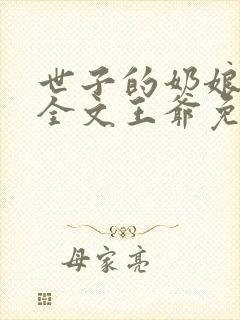 世子的奶娘
全文王爷免
母家亮